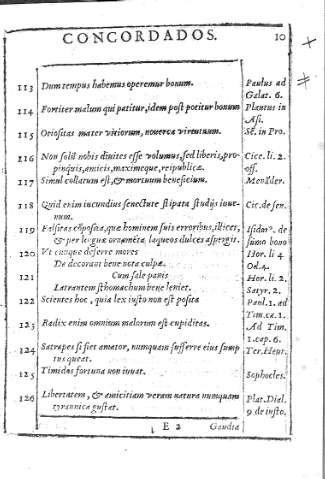 CONCORDADOS. 10
113 Dum tempus habemus operemur bonum. Paulus ad
Galat. 6.
114 Fortiter malum qui patitur, idem post potitur bonum Plautus in
Asi.
115 Otiositas mater vitiorum, noverca virtutum. Se. in Pro.
116 Non solũ nobis divites esse volumus, sed liberis, pro- Cice. li. 2.
pinquis, amicis, maximeque, reipublicæ. off.
117 Simul collatum est, & mortuum beneficium. Menãder.
118 Quid enim iucundius senectute stipata studijs iuve- Cic. de sen.
num.
119 Falsitas cõposita, quæ hominem suis erroribus, illicet, Isidorꝰ. de
& per linguæ ornamẽta, laqueos dulces aspergit. sũmo bono
120 Vt cunque defecere mores Hor. li 4
De decorant bene nota culpæ. Od. 4.
121 Cum sale panis Hor. li. 2.
Latrantem sthomachum bene leniet. Satyr. 2.
122 Scientes hoc, quia lex iusto non est posita Paul. 1. ad
Tim. ca. 1.
123 Radix enim omnium malorum est cupiditas. Ad Tim.
1. cap. 6.
124 Satrapes si siet amator, numquam sufferre eius sump Ter. Heut.
tus queat.
125 Timidos fortuna non iuvat. Sophocles.
126 Libertatem, & amicitiam veram natura nunquam Plat. Dial.
tyrannica gustat. 9 de iusto.
E 2 Gaudia